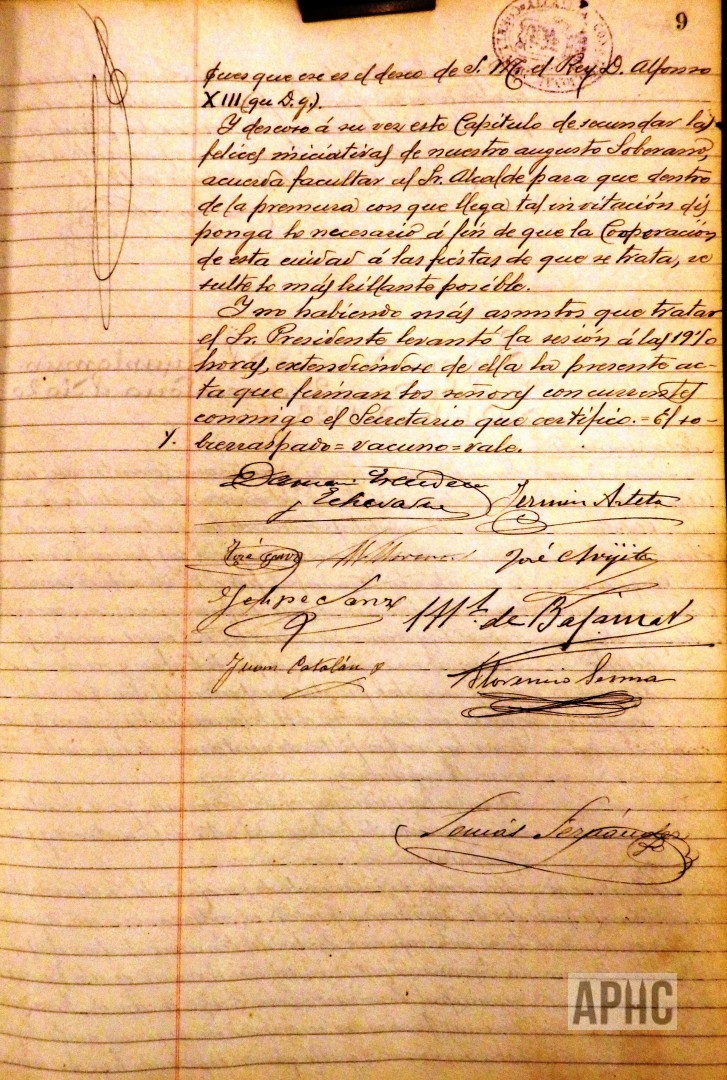 9
pues que ese es el deseo de S. M. el Rey D. Alfonso
XIII (qu D. g.).
Y deseoso á su vez este Capitulo de secundar las
felices iniciativas de nuestro augusto Soberano,
acuerda facultar al Sr. Alcalde para que dentro
de la premura con que llega tal invitación dis
ponga lo necesario á fin de que la Cooporación
de esta ciudad á las fiestas de que se trata, re
sulte lo más brillante posible.
Y no habiendo más asuntos que tratar
el Sr. Presidente levantó la sesión á las 19'10
horas, extendiéndose de ella la presente ac-
ta que firman los señores concurrentes
conmigo el Secretario que certifico.= El so-
Y. brerraspado= vacuno= vale.
y Echevarria Fermin Arteta
José M. Moreno José
Felipe Sanz M. de Bajamar
Juan Catalán Florencio
Tomás Fernández
APHC